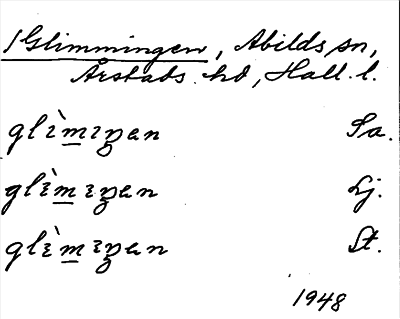 /Glimmingen, Abilds sn,
Årstads hd, Hall. l.
glìmıŋen Sa.
glìmıŋen Lj.
glìmıŋen St.
1948